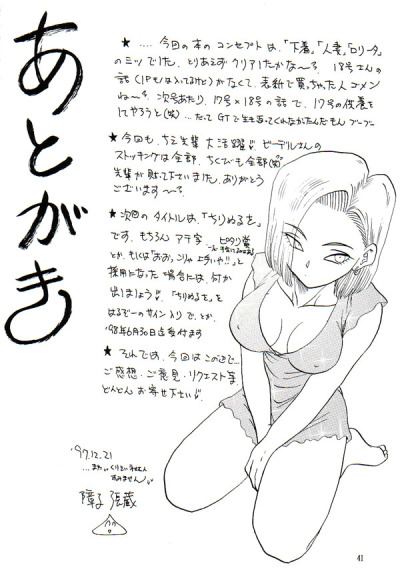 あとがき
★‥‥今回の本のコンセプトは、「下着」「人妻」「ロリータ」
のミツでした、とりあえずクリアしたかな〜?。18号さんの
話(1Pもはいってるけど)がなくて、表紙で買っちゃった人ゴメン
ね〜?。次号あたり、17号×18号の話で、17号の仮養を
してやろうと(笑)…だって GTで生き返ってくれなかったんだもん ブーブー
★今回も、ちえ先輩 大活躍 ビーデルさんの
ストッキングは全部、ちくでも全部(笑)
先輩が貼って下さいました、ありがとう
ございます〜?。
★次回のタイトルは、「ちりぬるを」
です、もちろん アテ字 ピタリ賞
とか、もしくは「おおっ、こりゃエライや!!」と
採用になった場合には、何か
出しましょう 「ちりぬるを」を
はるで〜のサイン入りで、とか、
'98年6月30日迄受付ます
★それでは、今回はこの辺で…
ご感想・ご意見・リクエスト等
どんどん お寄せ下さい
'97.12.21
すみません
障子張蔵
41